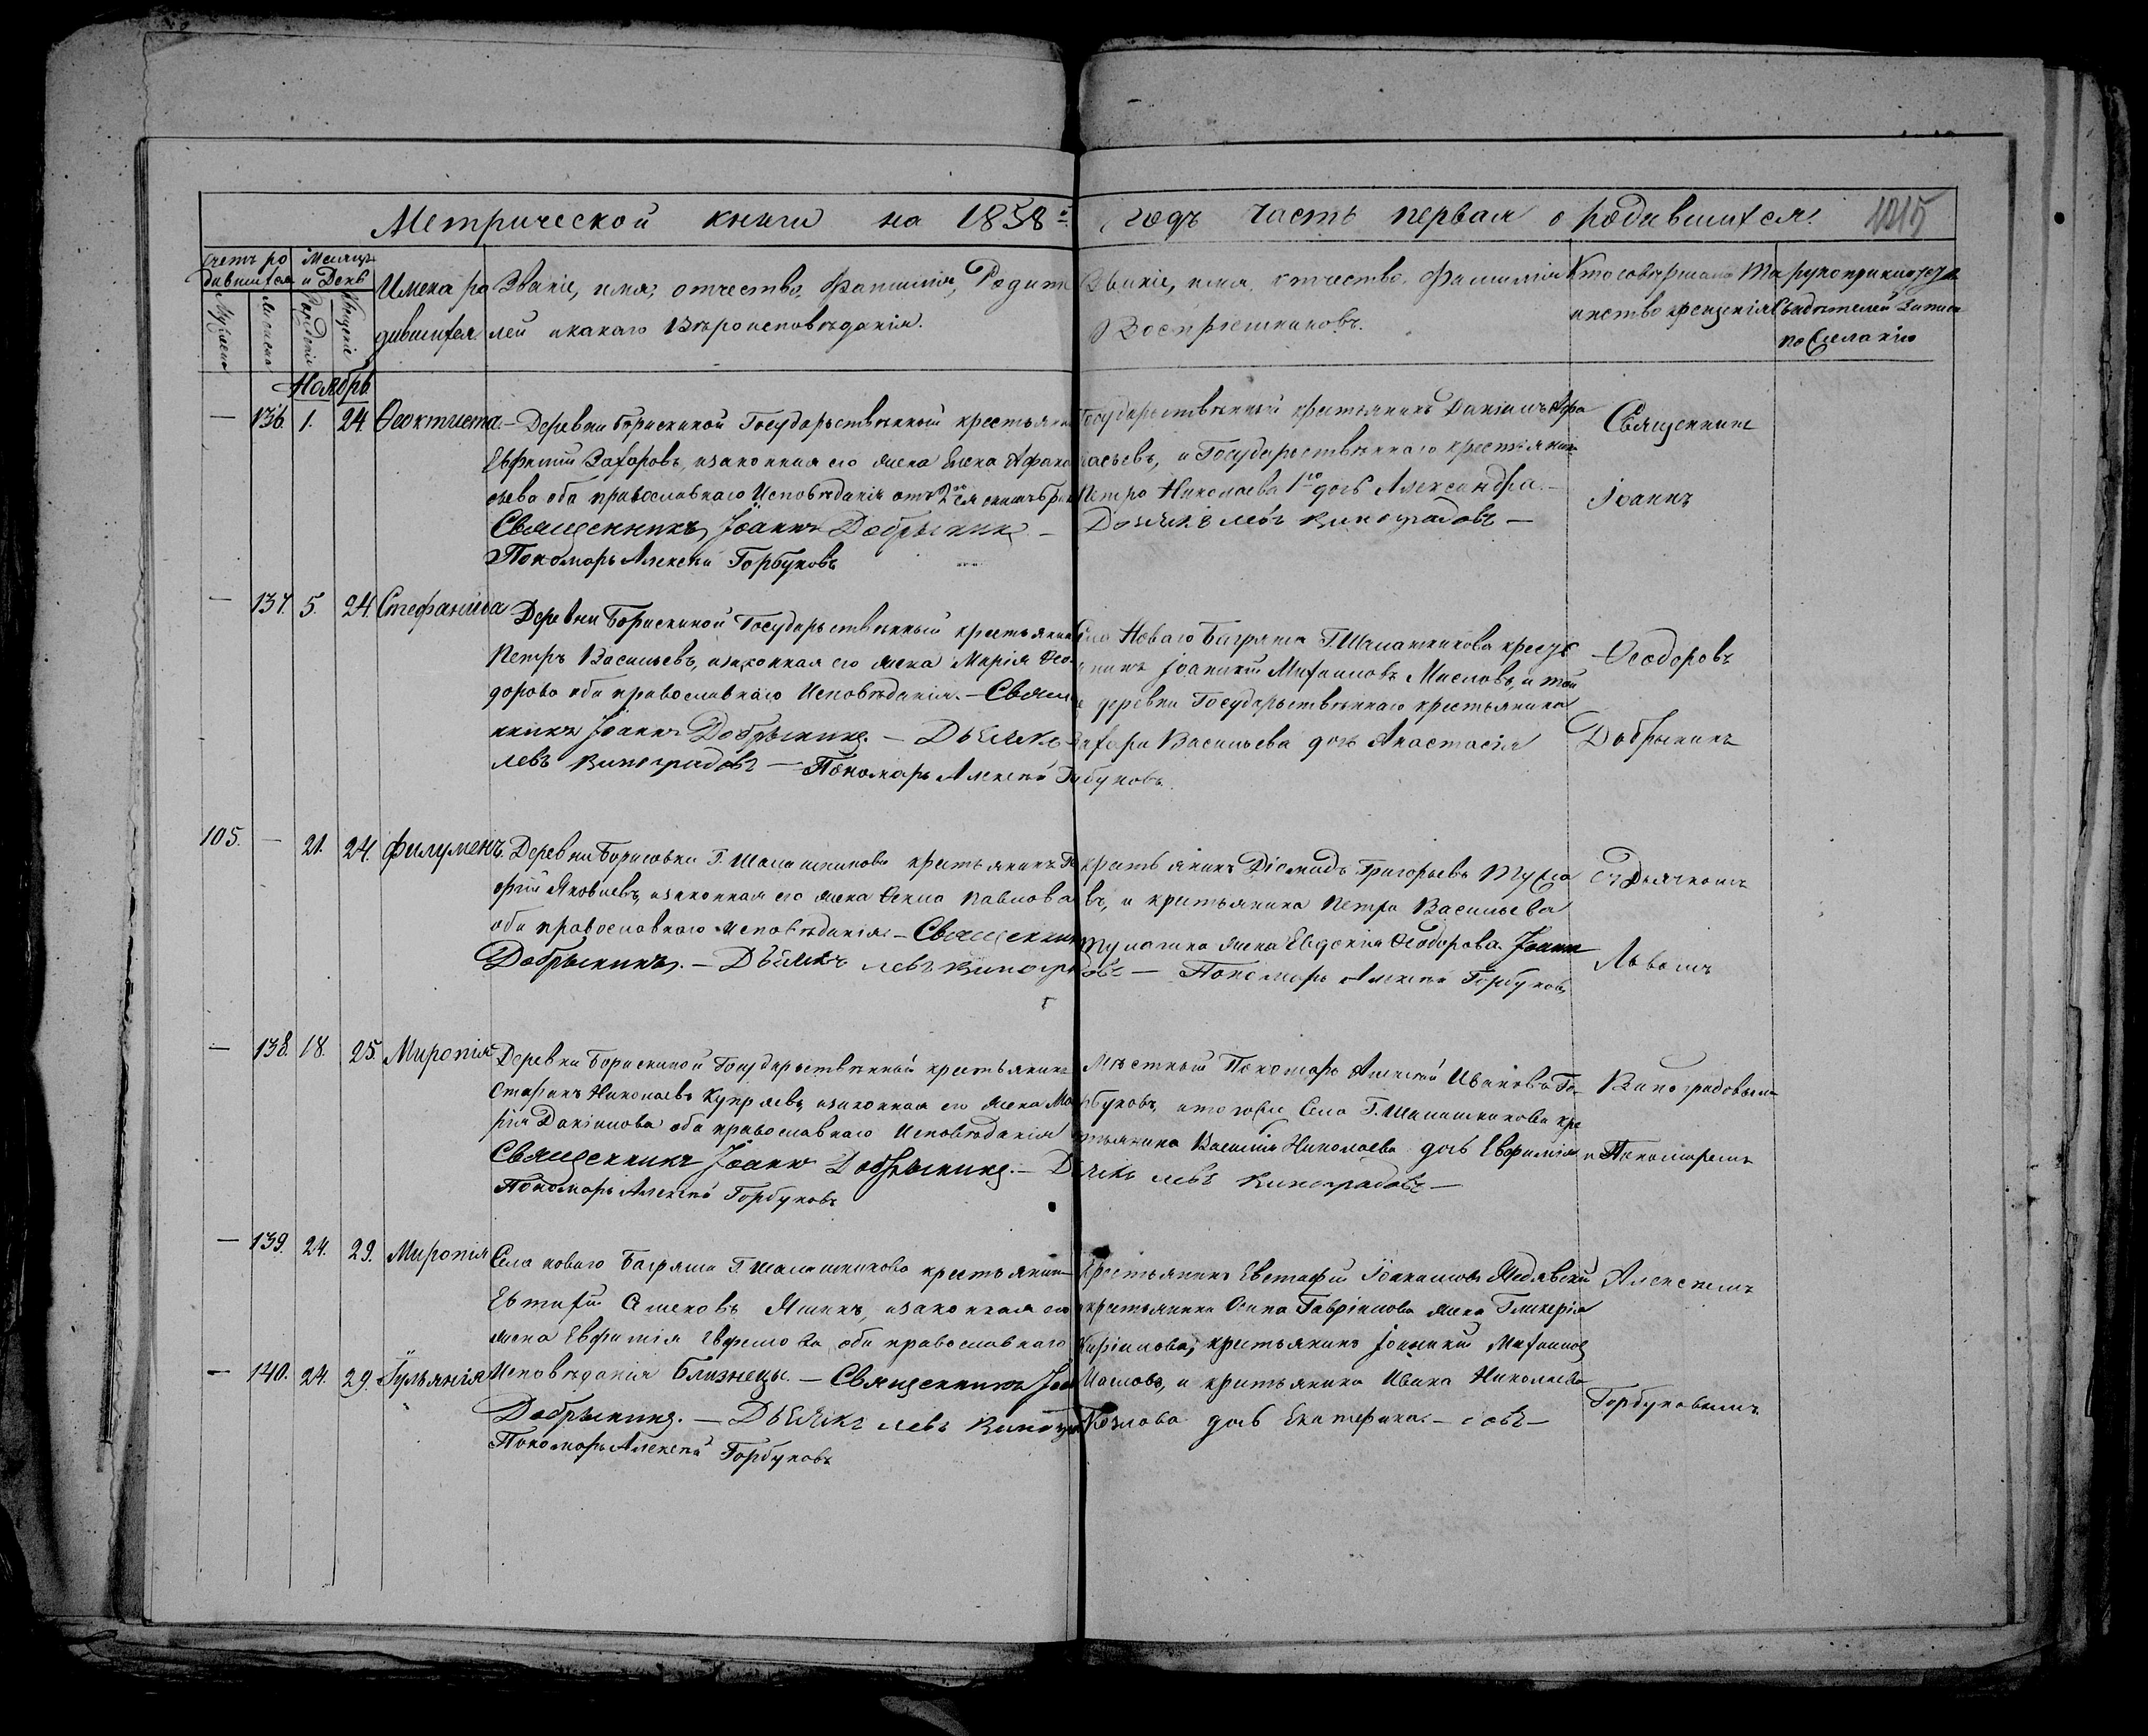 Метрической книги на 1858й годъ часть первая о родившихся. 1215
Счетъ ро
дившихся
Месяцъ
и День
Мужеска
Женска
Рожденія
Крещенія
Имена ро
дившихся
Званіе, имя, отчество, Фамилия, Родите
лей и какаго Вѣроисповѣданія.
Званіе, имя, отчество, Фамилия
Воспріемниковъ.
Кто совершалъ Та
инство крещенія
рукоприкладс
свидѣтелей Записи
по Желанію
Ноябрь
— 136. 1. 24. Ѳеоктиста.
Деревни Борискиной Государственный крестьянинъ
Евфимій Захаровъ, и законная его жена Елена Афана
сьева оба православнаго Исповѣданія отъ 2го
Священникъ Іоаннъ Добрынинъ —
Пономарь Алексѣй Горбуновъ
Государственный крестьянинъ Даніилъ Афа
насьевъ, и Государственнаго крестьянина
Петра Николаева 1го дочь Александра. —
Дьячекъ Левъ Виноградовъ —
Священникъ
Іоаннъ
— 137. 5. 24. Стефанида
Деревни Борискиной Государственный крестьянинъ
Петръ Васильевъ, и законная его жена Марія Ѳео
дорова оба православнаго Исповѣданія. — Свящ
нникъ Іоаннъ Добрынинъ. — Дьячекъ
Левъ Виноградовъ — Пономарь Алексѣй Горбуновъ.
Села Новаго Багряжа Г. Шалашникова кресть
янинъ Іоанникій Михаиловъ Масловъ, и той
же деревни Государственнаго крестьянина
Захара Васильева дочь Анастасія
Ѳеодоровъ
Добрынинъ
105. — 21. 24. Филуменъ.
Деревни Борисовки Г. Шалашникова крестьянинъ Ге
оргій Яковлевъ, и законная его жена Ѳекла Павлова
оба православнаго исповѣданія. — Священникъ
Добрынинъ. — Дьячекъ Левъ Виноградовъ — Пономарь Алексѣй Горбуновъ
крестьянинъ Діомидъ Григорьевъ
въ, и крестьянина Петра Васильева
жена Евдокія Ѳеодорова. Іоаннъ
съ Дьячкомъ
Львомъ
— 138. 18. 25. Миропія
Деревни Борискиной Государственный крестьянинъ
Стефанъ Николаевъ Купряевъ, и законная его жена Ма
рія Даніилова оба православнаго Исповѣданія
Священникъ Іоаннъ Добрынинъ. — Дьячекъ Левъ Виноградовъ —
Пономарь Алексѣй Горбуновъ
Мѣстный Пономарь Алексѣй Ивановъ Го
рбуновъ, и тогоже Села Г. Шалашникова кре
стьянина Василія Николаева дочь Евфимія
Виноградовымъ
и Пономаремъ
— 139. 24. 29. Миропія
Села новаго Багряжа Г. Шалашникова крестьянинъ
Евтихій Семеновъ Яшинъ, и законная его
жена Евфимія Евфимова оба православнаго
— 140. 24. 29. Іульянія
Исповѣданія Близнецы. — Священникъ Іоаннъ
Добрынинъ. — Дьячекъ Левъ Виноградовъ —
Пономарь Алексѣй Горбуновъ
Крестьянинъ Евстафій Іоакимовъ
крестьянина Осипа Гавріилова жена Гликерія
Киріилова, крестьянинъ Іоанникій Михаиловъ
Масловъ, и крестьянина Ивана Николаева
Козлова дочь Екатерина. —
Алексѣемъ
Горбуновымъ.